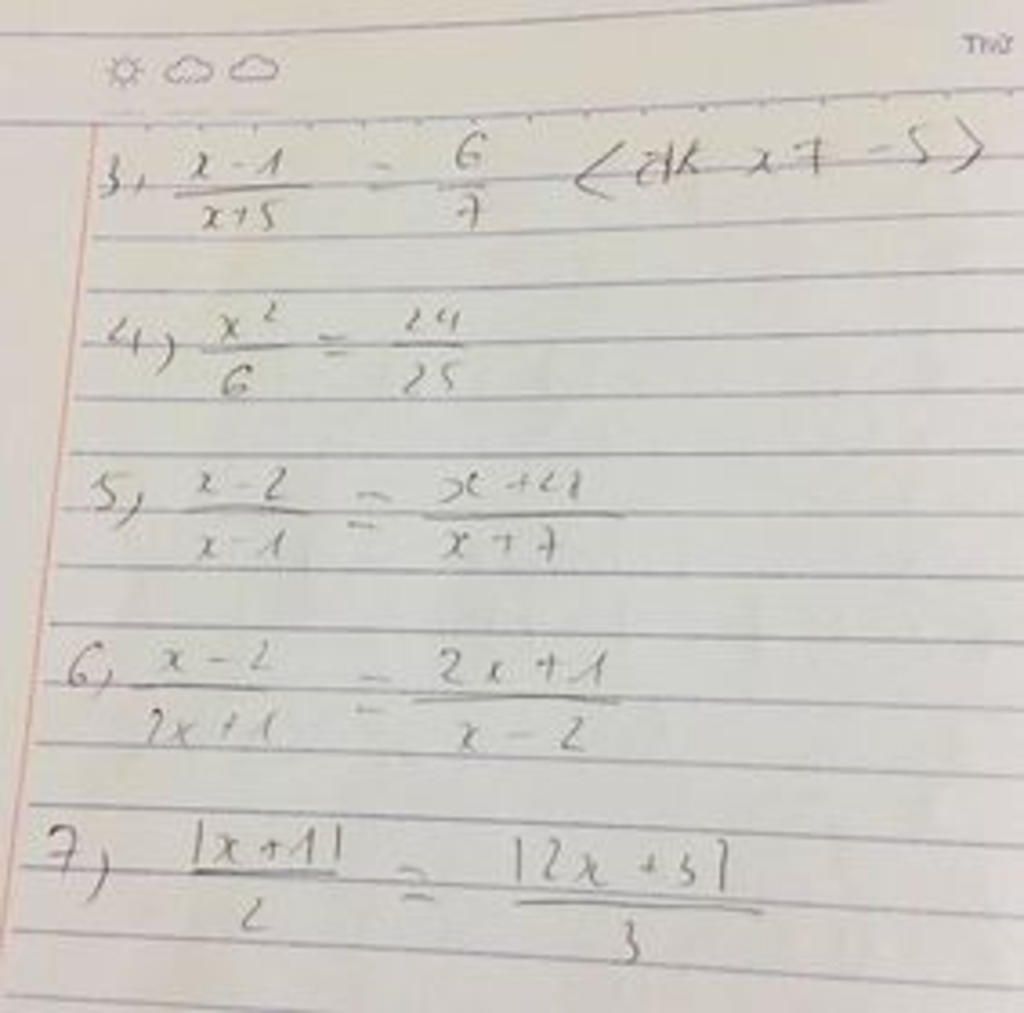 Thứ
3, \frac{x-1}{x+5} = \frac{6}{7} (đk x ≠ -5)
4) \frac{x^2}{6} = \frac{24}{25}
5, \frac{x-2}{x-1} = \frac{x+4}{x+7}
6, \frac{x-2}{2x+1} = \frac{2x+1}{x-2}
7) \frac{|x+1|}{2} = \frac{|2x+3|}{3}